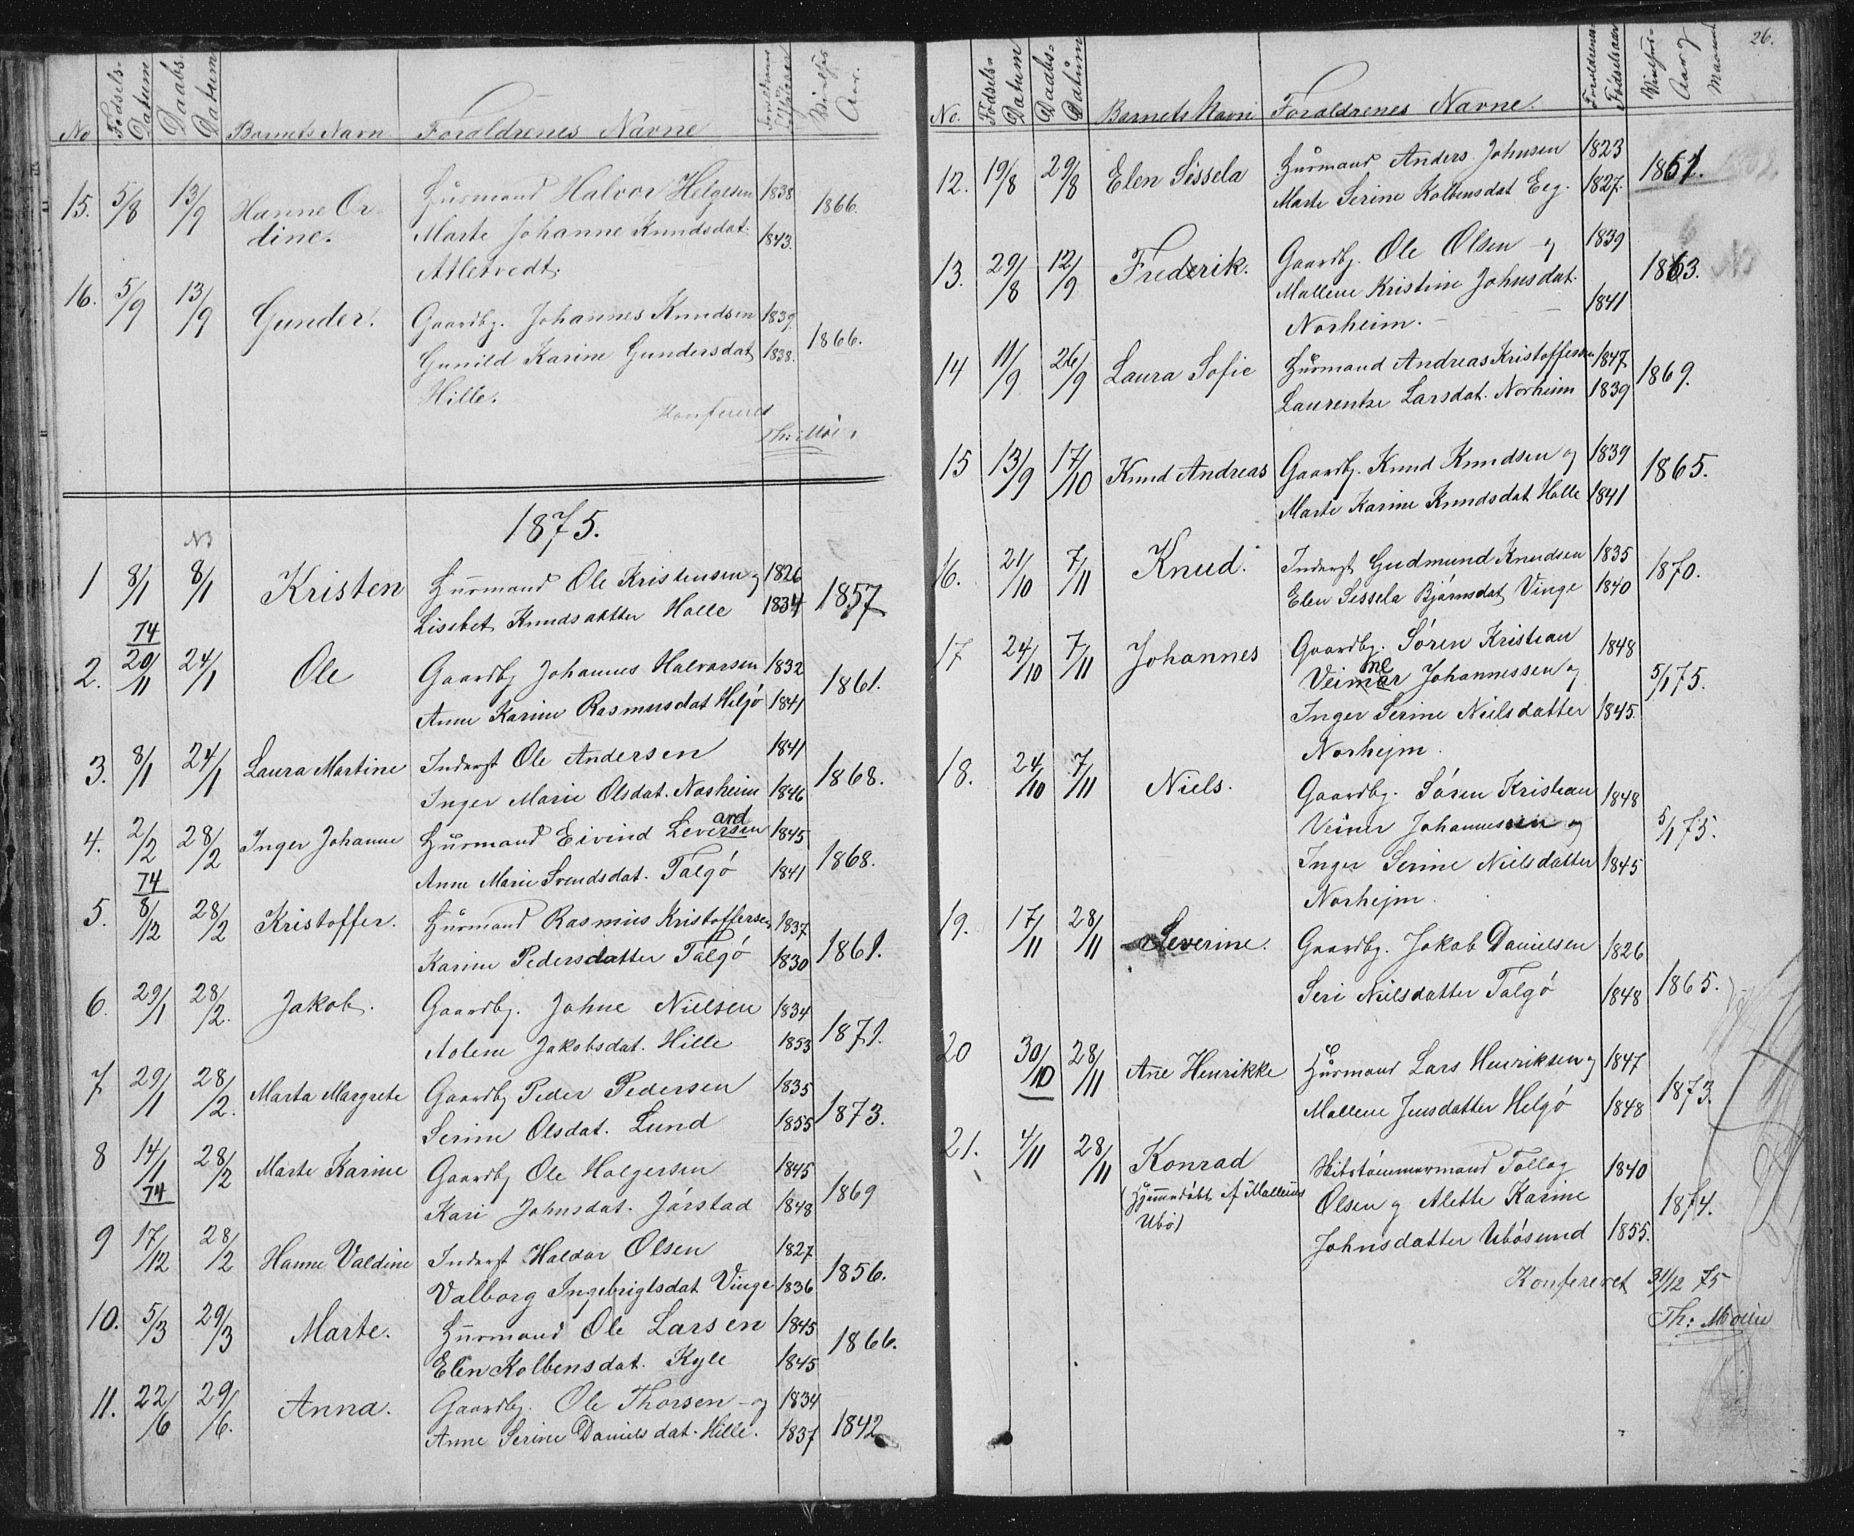 No Fødsels-Datum Daabs-Datum Barnets Navn Foraldrenes Navne Vielses Aar.
15. 5/8 13/9 Hanne Or- Huusmand Halvor Helgesen 1838 1866.
dine. Marte Johanne Knudsdat. 1843.
Atletvedt.
16. 5/9 13/9 Gunder. Gaardbr. Johannes Knudsen 1839. 1866.
Gunild Karine Gundersdat 1838.
Hille.
Konfereres
Th: Møl
1875.
N3
1 8/1 8/1 Kristen Huusmand Ole Kristensen og 1826 1857
Lisebet Knudsdatter Halle 1834
74
2. 20/11 24/1 Ole Gaardbr Johannes Halvorsen 1832 1861.
Anne Karine Rasmusdat Helgø 1841
3. 8/1 24/1 Laura Martine Inderst Ole Andersen 1841 1868.
Inger Marie Olsdat. Norheim 1846
ard
4. 2/2 28/2 Inger Johanne Huusmand Eivind Leversen 1845 1868.
Anne Marie Svendsdat. Talgø 1841
74
5. 8/12 28/2 Kristoffer. Huusmand Rasmus Kristoffersen 1837 1861.
Karine Pedersdatter Talgø 1830
6. 29/1 28/2. Jakob. Gaardbr. Johne Nielsen 1834 1871.
Aolene Jakobsdat. Hille 1853
7 29/1 28/2. Marta Margrete Gaardbr Peder Pedersen 1835 1873.
Serine Olsdat. Lund 1855
8 14/1 28/2 Marte Karine Gaardbr Ole Holgersen 1845 1869
Kari Johnsdat. Jørstad 1848
74
9 17/12 28/2 Hanne Valdine Inderst Haldor Olsen 1827 1856.
Valborg Ingebrigtsdat Vinge 1836
10. 5/3 29/3 Marte. Huusmand Ole Larsen 1845 1866.
Elen Kolbensdat. Kyle 1845
11. 22/6 29/6. Anna. Gaardbr. Ole Thorsen og 1834 1842
Anne Serine Danielsdat. Hille. 1837
26.
No. Fødsels-Datum Daabs-Datum Barnets Navn Foraldrenes Navne. Foraldrenes Fødselsaar Vielses-Aar og Maaned
12. 19/8 29/8 Elen Sissela Huusmand Anders Johnsen 1823 1861.
Marte Serine Kolbensdat Eeg. 1827.
13. 29/8 12/9 Frederik. Gaardbr. Ole Olsen og 1839 1863.
Mallene Kristine Johnsdat. 1841
Norheim.
14 11/9 26/9 Laura Sofie Huusmand Andreas Kristoffersen 1847 1869.
Laurentze Larsdat. Norheim 1839
15 13/9 17/10 Knud Andreas Gaardbr. Knud Knudsen og 1839 1865.
Marte Karine Knudsdat Halle 1841
16. 21/10 7/11 Knud. Inderst Gudmund Knudsen 1835 1870.
Elen Sissela Bjørnsdat Vinge 1840
17 24/10 7/11 Johannes Gaardbr. Søren Kristian 1848 5/1 75.
ne
Veimar Johannessen og
Inger Serine Nielsdatter 1845.
Norhejm.
18. 24/10 7/11 Niels. Gaardbr. Søren Kristian 1848 5/1 75.
Veiner Johannessen og
Inger Serine Nielsdatter 1845
Norhejm.
19. 17/11 28/11 Severine. Gaardbr. Jakob Danielsen 1826 1865.
Seri Nielsdatter Talgø 1848
20 30/10 28/11 Ane Henrikke Huusmand Lars Henriksen og 1847 1873.
Mallene Jensdatter Helgø 1848
21. 4/11 28/11 Konrad Skibstømmermand Tollag 1840 1874.
(Hjemmedøbt af Mallenus Olsen og Alette Karine
Ubø) Johnsdatter Ubøsund 1855.
Konfereret 31/12 75
Th: Møller